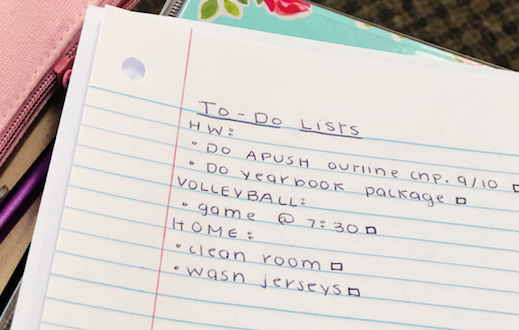 To-Do Lists
HW:
• Do APUSH outline chp. 9/10 □
• Do yearbook package □
VOLLEYBALL:
• game @ 7:30 □
HOME:
• clean room □
• wash jerseys □